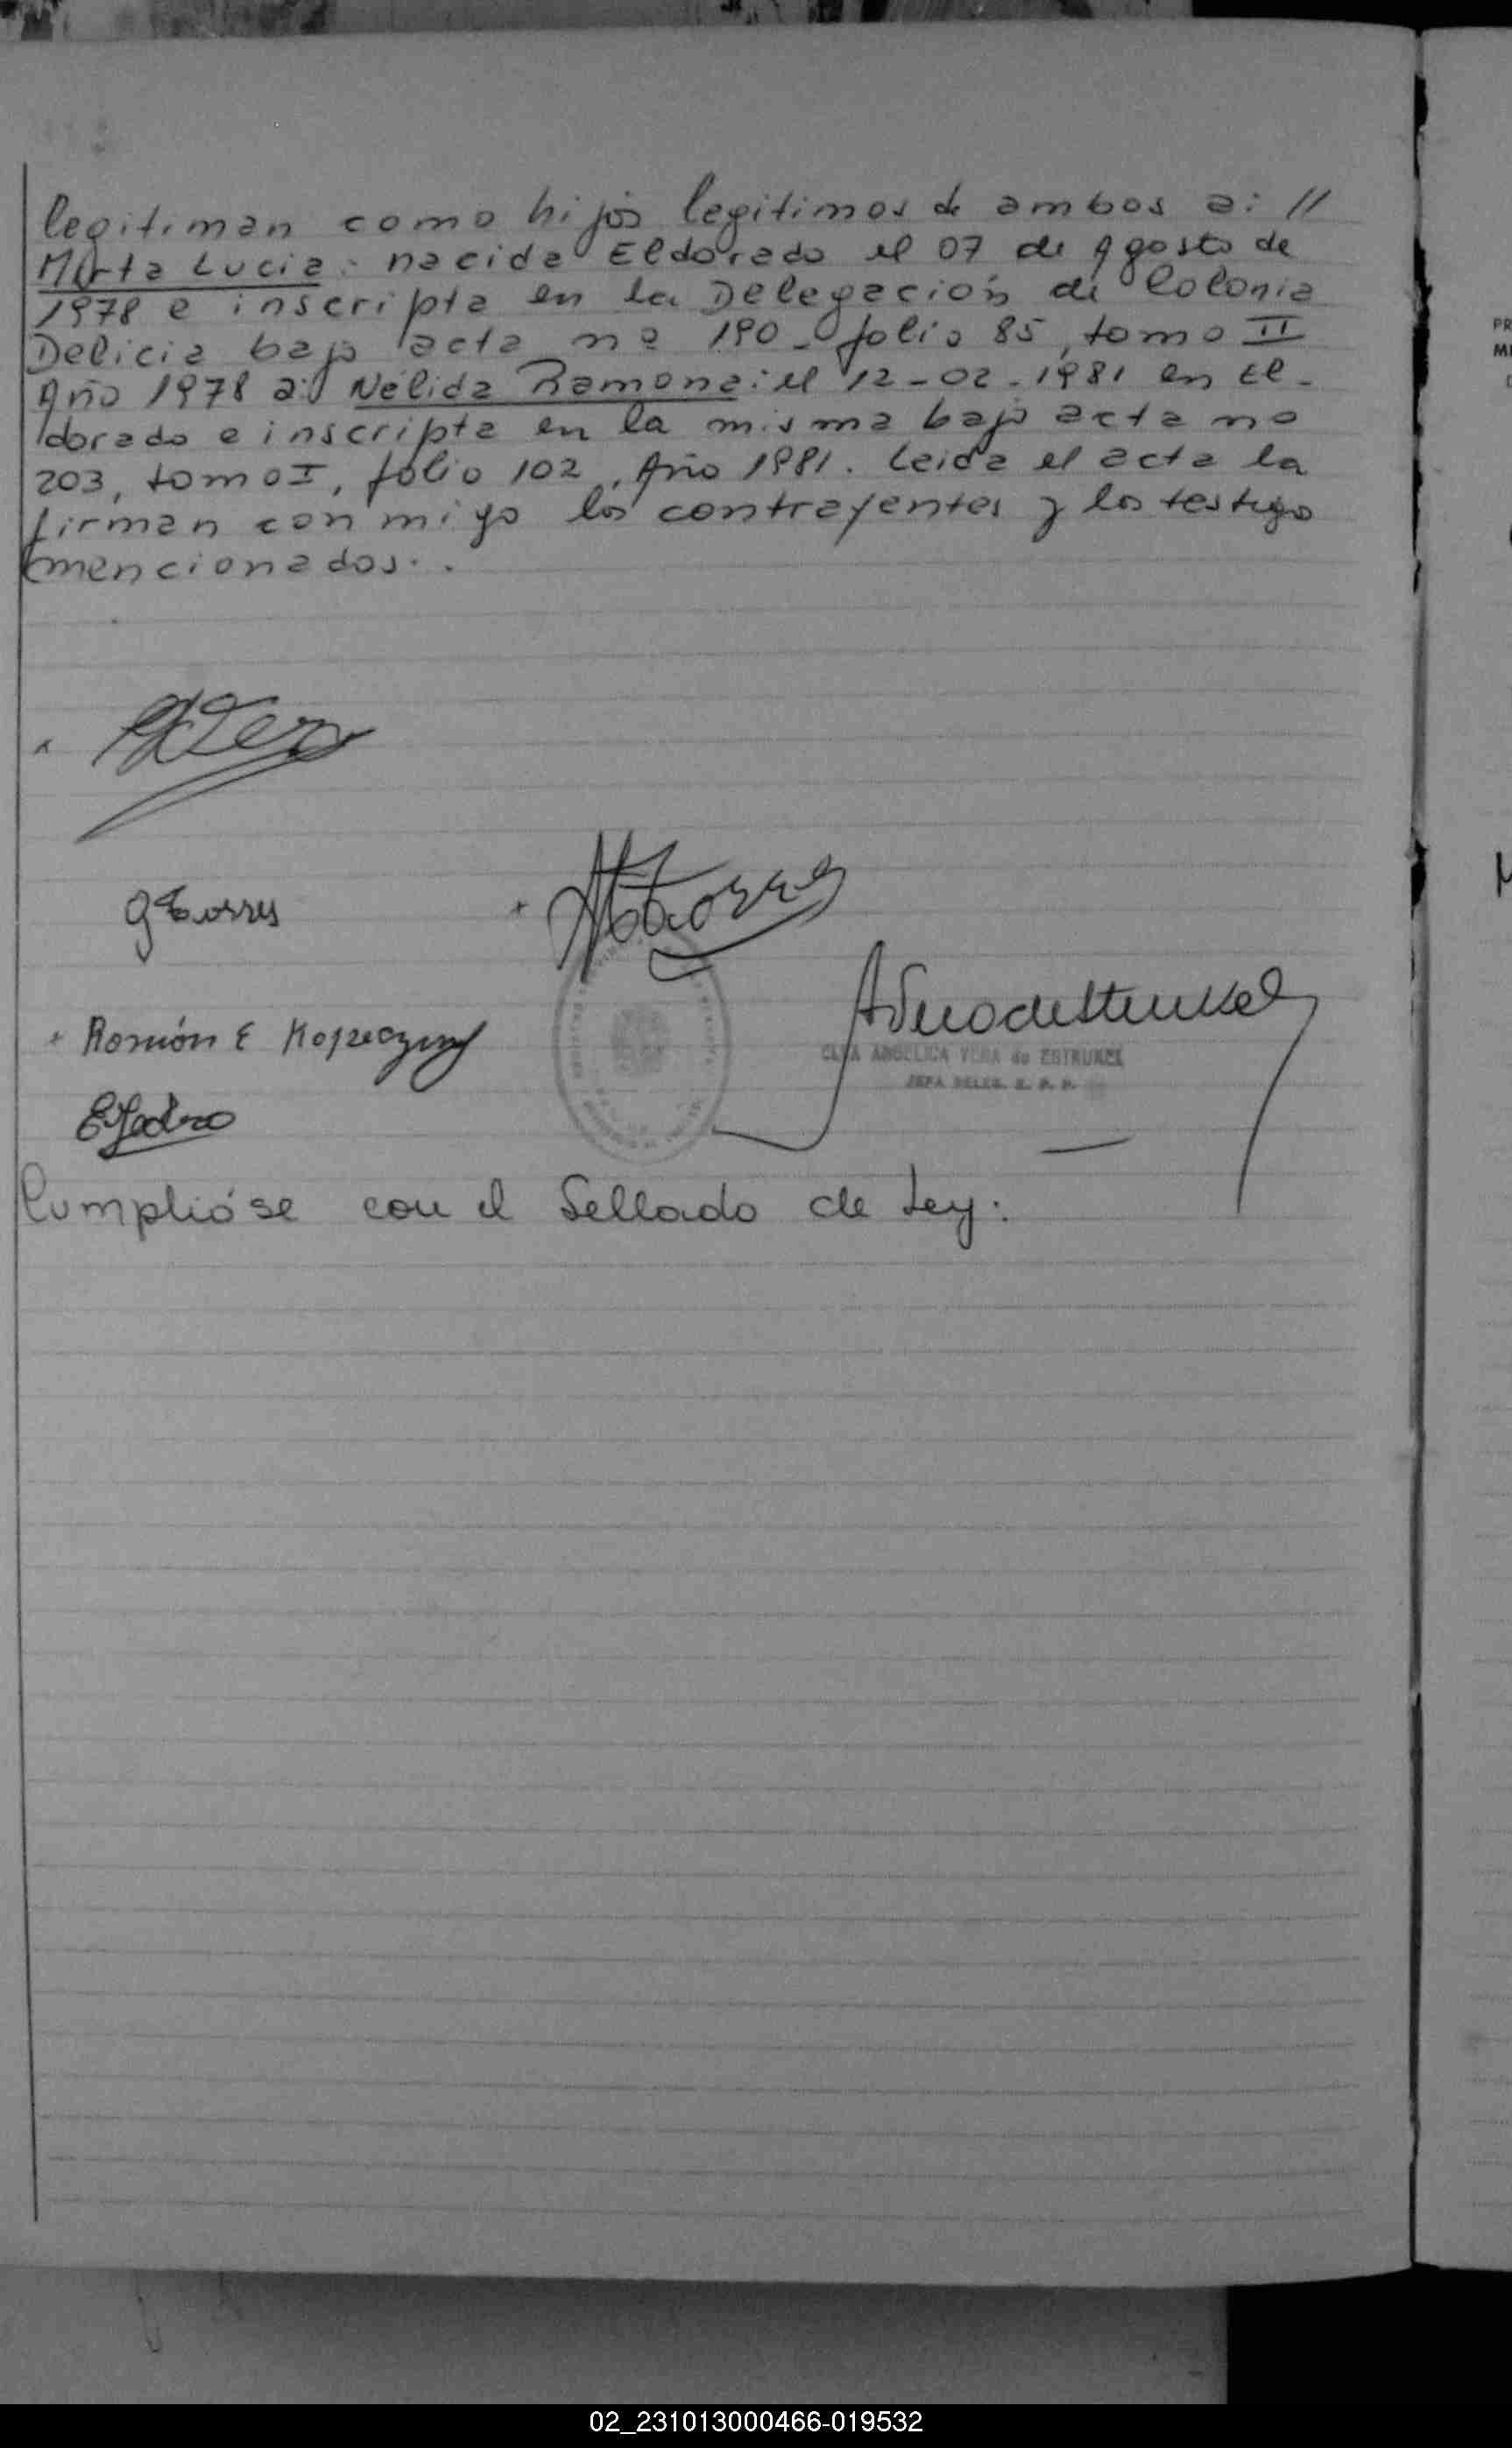 legitiman como hijos legitimos de ambos a: //
Mirta Lucia: nacida Eldorado el 07 de Agosto de
1978 e inscripta en la Delegación de Colonia
Delicia bajo acta nº 190 - folio 85, tomo II
Año 1978 a: Nélida Ramona: el 12-02-1981 en El-
dorado e inscripta en la misma bajo acta no
203, tomo I, folio 102, Año 1981. Leida el acta la
firman con migo los contrayentes y los testigo
mencionados..
G Torres
Ramón E
ANGELICA VERA de ESTRUKEL
JEFA DELEG. R. P. P.
Cumplióse con el Sellado de Ley.
PR
MI
M
02_231013000466-019532